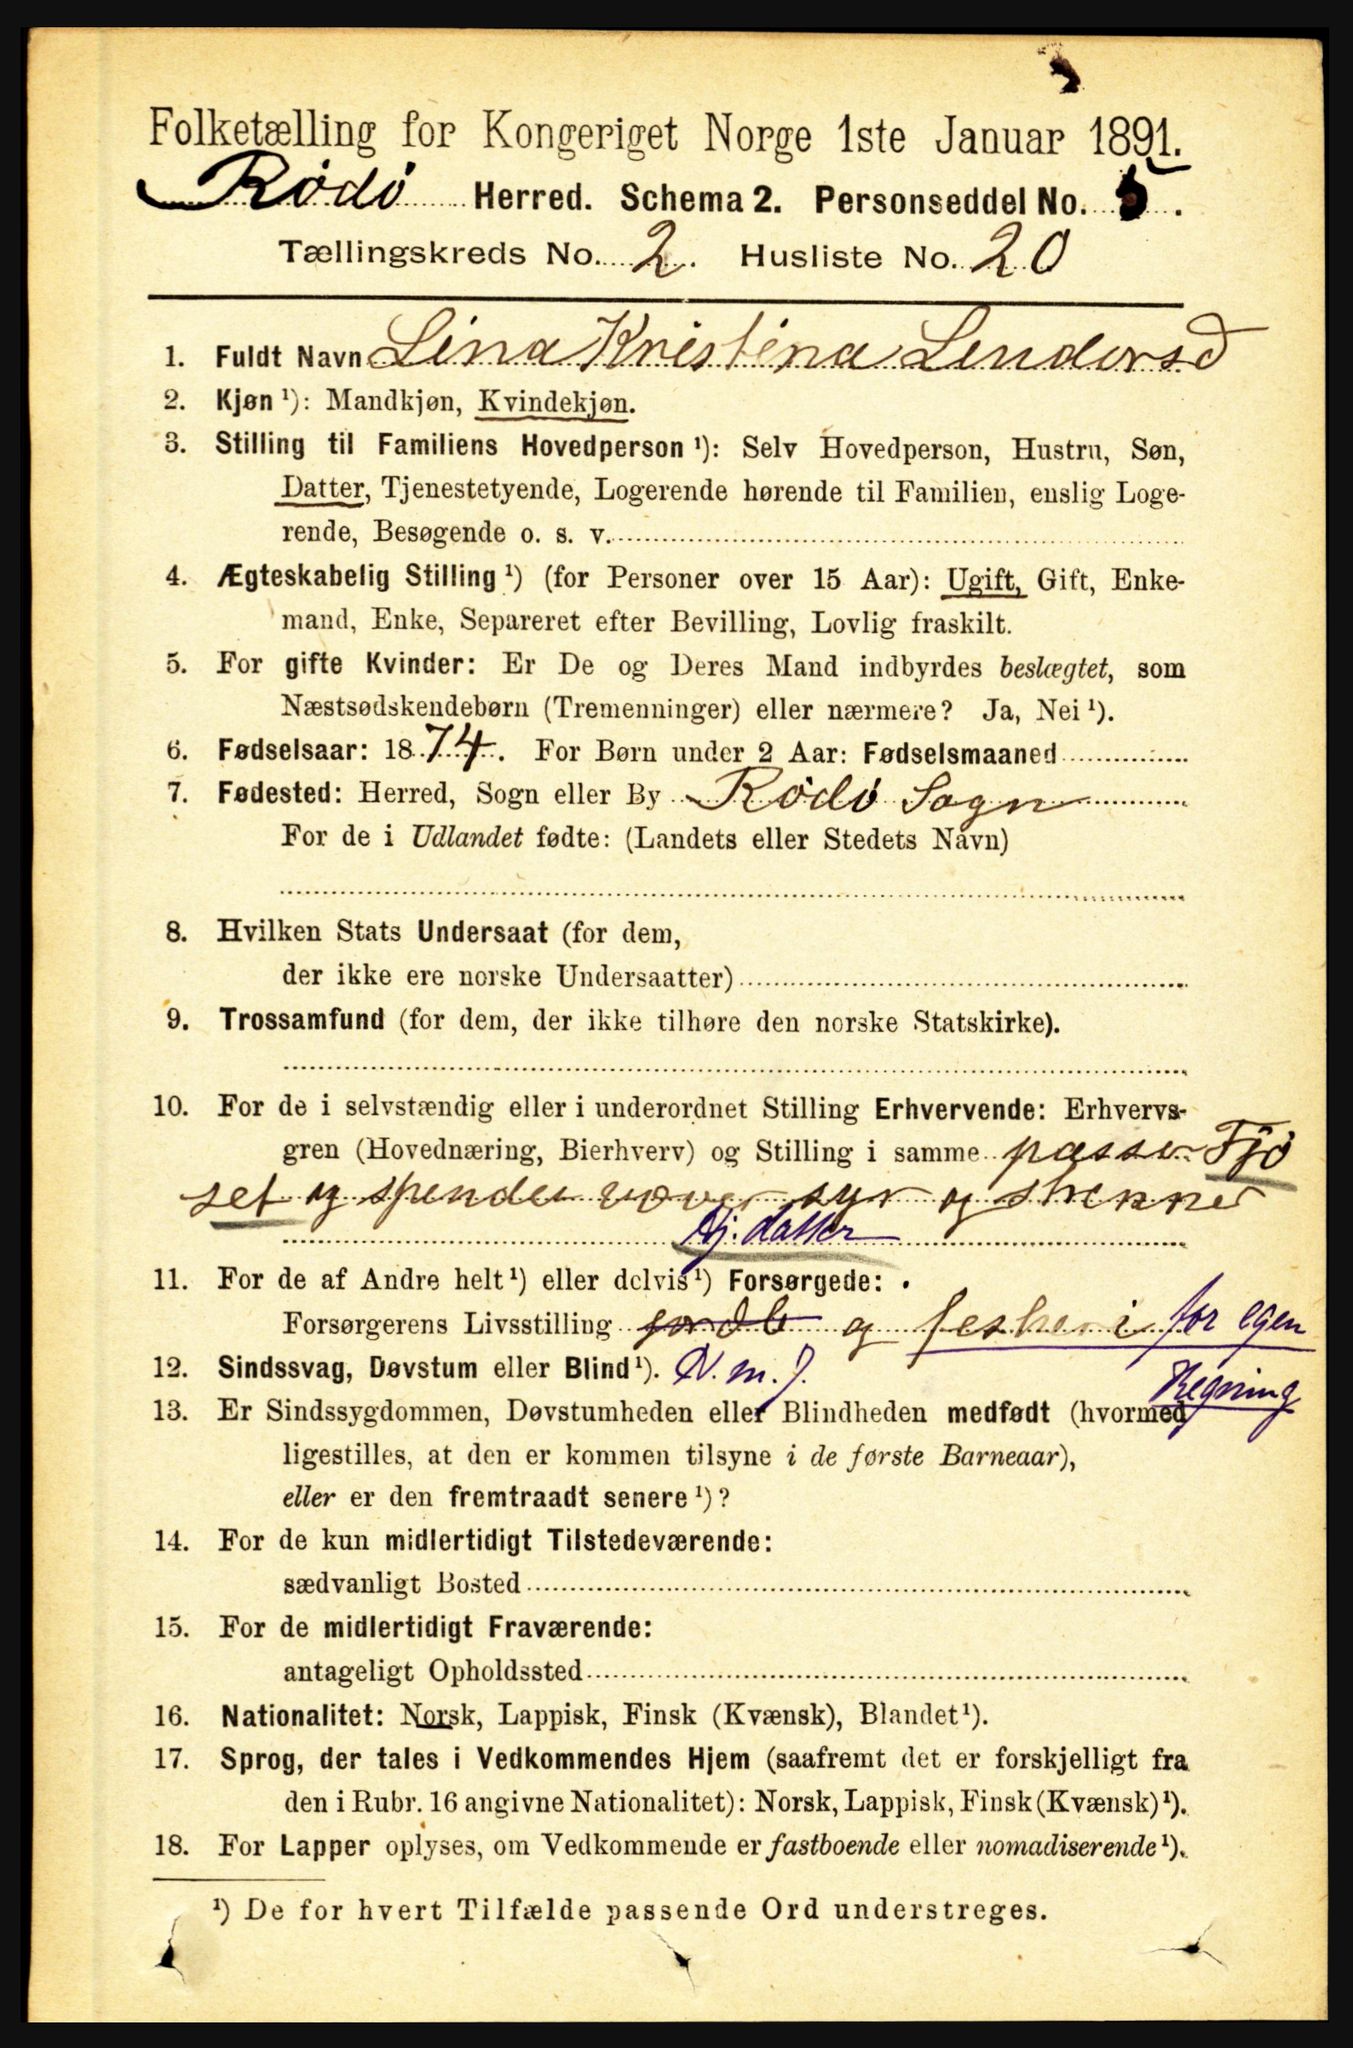 Folketælling for Kongeriget Norge 1ste Januar 1891.
Rödö Herred. Schema 2. Personseddel No. 5.
Tællingskreds No. 2. Husliste No. 20
1. Fuldt Navn Lina Kristina Lendersd
2. Kjøn ¹): Mandkjøn, Kvindekjøn.
3. Stilling til Familiens Hovedperson ¹): Selv Hovedperson, Hustru, Søn,
Datter, Tjenestetyende, Logerende hørende til Familien, enslig Loge-
rende, Besøgende o. s. v.
4. Ægteskabelig Stilling ¹) (for Personer over 15 Aar): Ugift, Gift, Enke-
mand, Enke, Separeret efter Bevilling, Lovlig fraskilt.
5. For gifte Kvinder: Er De og Deres Mand indbyrdes beslægtet, som
Næstsødskendebørn (Tremenninger) eller nærmere? Ja, Nei ¹).
6. Fødselsaar: 1874. For Børn under 2 Aar: Fødselsmaaned
7. Fødested: Herred, Sogn eller By Rödö Sogn
For de i Udlandet fødte: (Landets eller Stedets Navn)
8. Hvilken Stats Undersaat (for dem,
der ikke ere norske Undersaatter)
9. Trossamfund (for dem, der ikke tilhøre den norske Statskirke).
10. For de i selvstændig eller i underordnet Stilling Erhvervende: Erhvervs-
gren (Hovednæring, Bierhverv) og Stilling i samme passer Fjö
set og spender væver syr og strenner
Hj. datter
11. For de af Andre helt ¹) eller delvis ¹) Forsørgede:
Forsørgerens Livsstilling jordb og fesheri for egen
Regning
12. Sindssvag, Døvstum eller Blind ¹). N. m. J.
13. Er Sindssygdommen, Døvstumheden eller Blindheden medfødt (hvormed
ligestilles, at den er kommen tilsyne i de første Barneaar),
eller er den fremtraadt senere ¹)?
14. For de kun midlertidigt Tilstedeværende:
sædvanligt Bosted
15. For de midlertidigt Fraværende:
antageligt Opholdssted
16. Nationalitet: Norsk, Lappisk, Finsk (Kvænsk), Blandet ¹).
17. Sprog, der tales i Vedkommendes Hjem (saafremt det er forskjelligt fra
den i Rubr. 16 angivne Nationalitet): Norsk, Lappisk, Finsk (Kvænsk) ¹).
18. For Lapper oplyses, om Vedkommende er fastboende eller nomadiserende ¹).
¹) De for hvert Tilfælde passende Ord understreges.